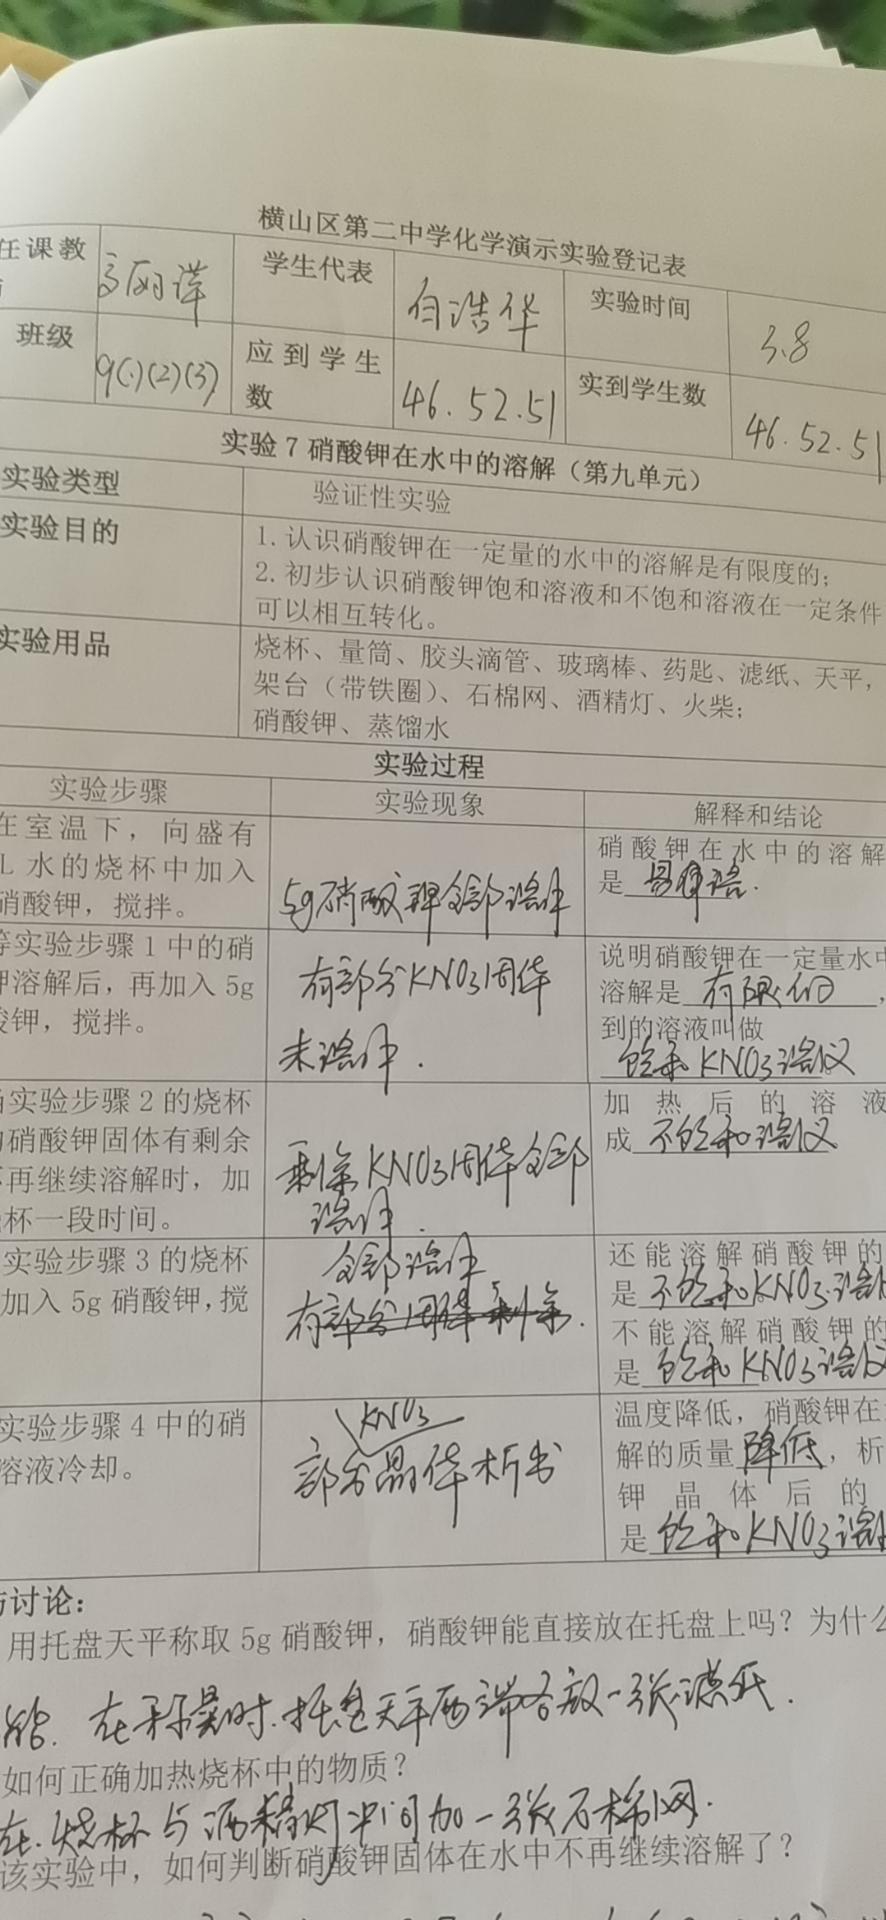 横山区第二中学化学演示实验登记表
任课教
学生代表
白浩华
实验时间
3.8
班级
9(1)(2)(3)
应到学生
数
46.52.51
实到学生数
46.52.51
实验7 硝酸钾在水中的溶解（第九单元）
实验类型
验证性实验
实验目的
1. 认识硝酸钾在一定量的水中的溶解是有限度的；
2. 初步认识硝酸钾饱和溶液和不饱和溶液在一定条件
可以相互转化。
实验用品
烧杯、量筒、胶头滴管、玻璃棒、药匙、滤纸、天平，
架台（带铁圈）、石棉网、酒精灯、火柴；
硝酸钾、蒸馏水
实验过程
实验步骤
实验现象
解释和结论
在室温下，向盛有
L 水的烧杯中加入
硝酸钾，搅拌。
5g硝酸钾全部溶解
硝酸钾在水中的溶解
是 易溶.
等实验步骤1中的硝
钾溶解后，再加入5g
酸钾，搅拌。
有部分KNO3固体
未溶解.
说明硝酸钾在一定量水中
溶解是 有限的，
到的溶液叫做
饱和KNO3溶液
当实验步骤2的烧杯
的硝酸钾固体有剩余
不再继续溶解时，加
烧杯一段时间。
剩余KNO3固体全部
溶解.
加热后的溶液
成 不饱和溶液
实验步骤3的烧杯
加入5g硝酸钾，搅
全部溶解
有部分固体剩余.
还能溶解硝酸钾的
是 不饱和KNO3溶液
不能溶解硝酸钾的
是 饱和KNO3溶液
实验步骤4中的硝
溶液冷却。
KNO3
部分晶体析出
温度降低，硝酸钾在
解的质量降低，析
钾晶体后的
是 饱和KNO3溶液
与讨论：
用托盘天平称取5g硝酸钾，硝酸钾能直接放在托盘上吗？为什么
能. 在称量时.托盘天平两端各放一张滤纸.
如何正确加热烧杯中的物质？
在烧杯与酒精灯中间加一张石棉网.
该实验中，如何判断硝酸钾固体在水中不再继续溶解了？